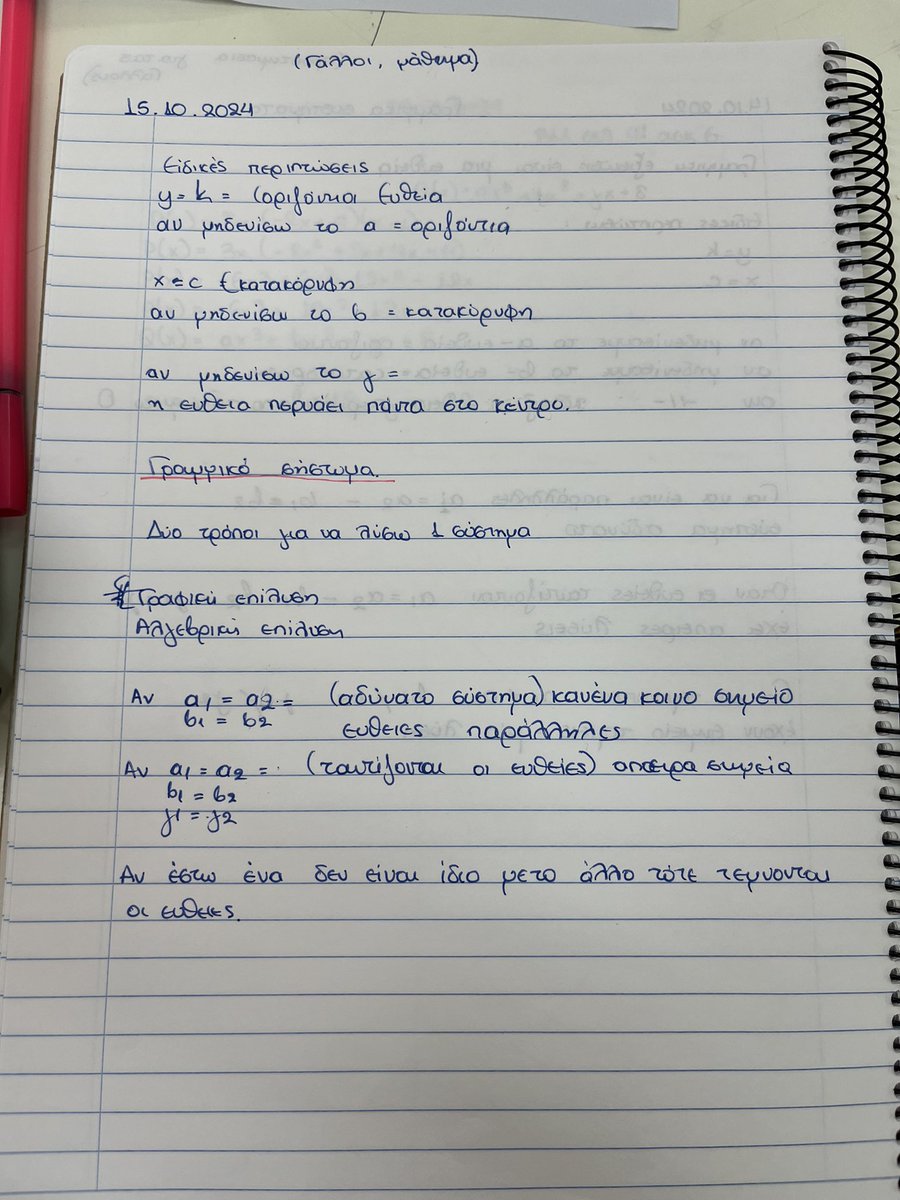 (Γάλλοι, μάθημα)
15.10.2024
Ειδικές περιπτώσεις
y = k = (οριζόντια Ευθεία
αν μηδενίσω το α = οριζόντια
x = c ϵκατακόρυφη
αν μηδενίσω το β = κατακόρυφη
αν μηδενίσω το γ =
η ευθεια περνάει πάντα στο κέντρο.
Γραμμικό σήστωμα.
Δύο τρόποι για να λύσω 1 σύστημα
Γραφική επίλυση
Αλγεβρική επίλυση
Αν α1 = α2 = (αδύνατο σύστημα) κανένα κοινο σημείο
β1 = β2 ευθειες παράλληλες
Αν α1 = α2 = (ταυτίζονται οι ευθείες) απειρα σημεία
β1 = β2
γ1 = γ2
Αν έστω ένα δεν είναι ίδιο μετο άλλο τότε τεμνονται
οι ευθειες.